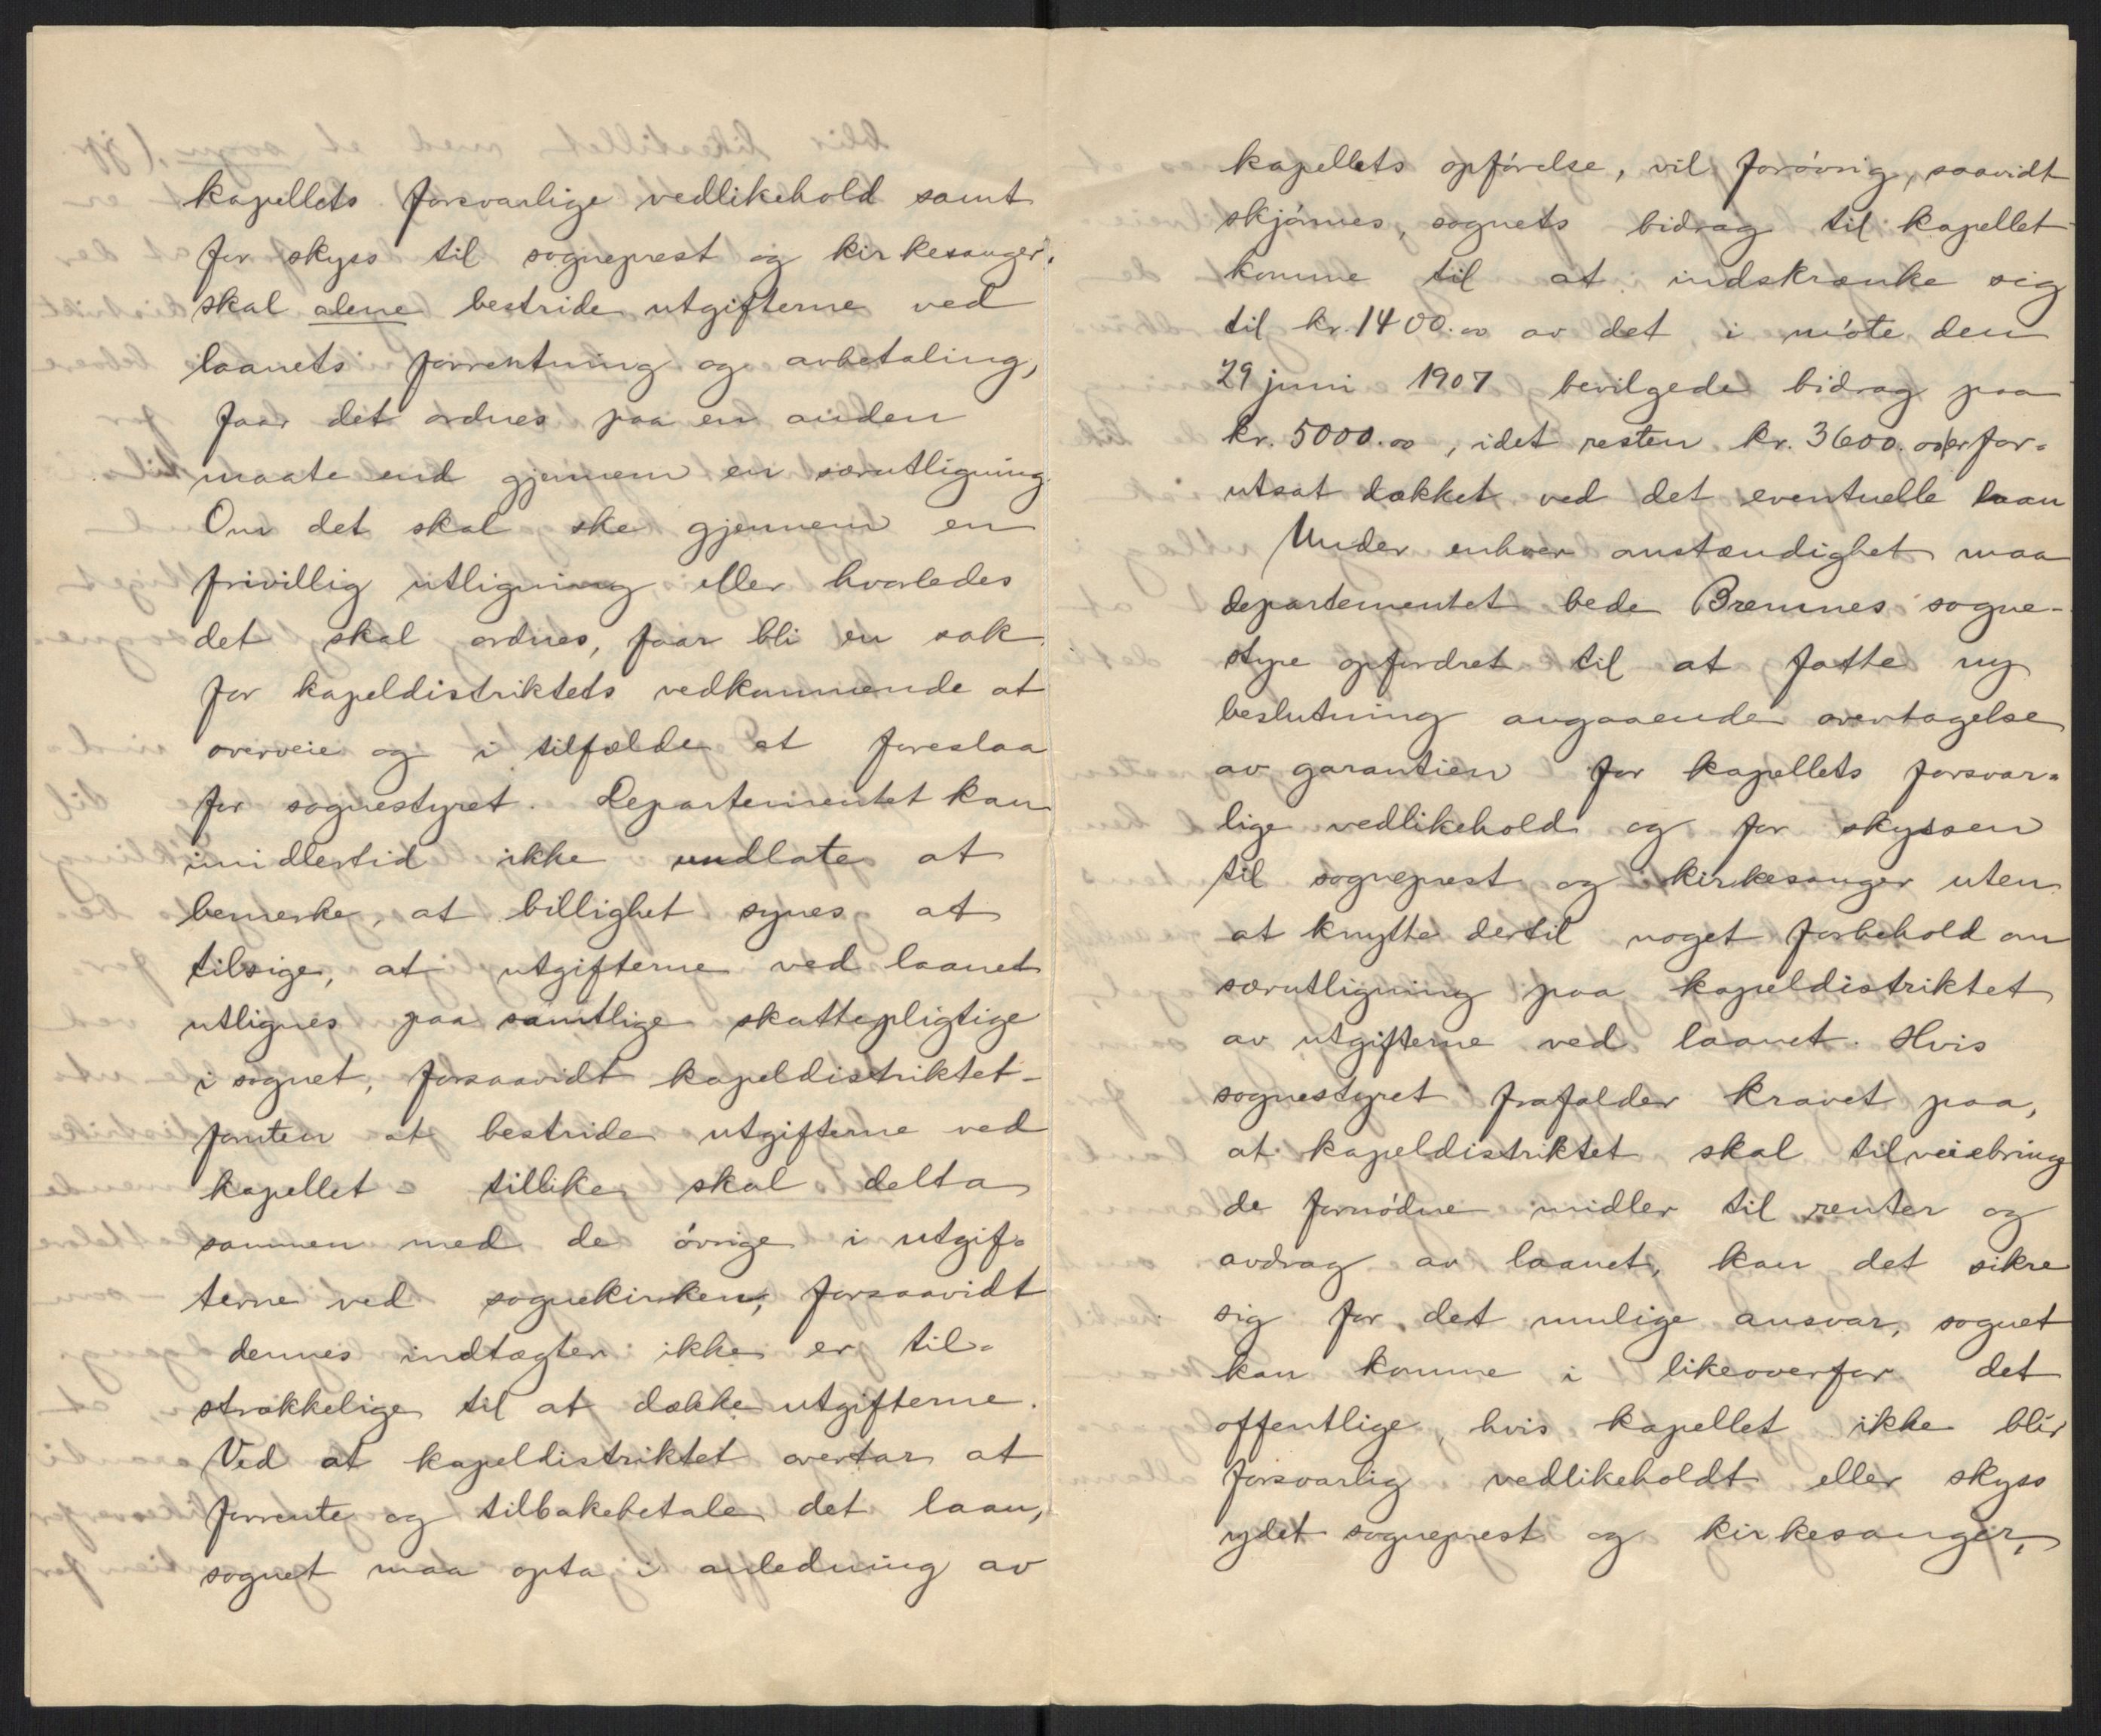 kapellets forsvarlige vedlikehold samt
for skyss til sogneprest og kirkesanger.
skal alene bestride utgifterne ved
laanets forrentning og avbetaling,
faar det ordnes paa en anden
maate end gjennem en særutligning.
Om det skal ske gjennem en
frivillig utligning eller hvorledes
det skal ordnes, faar bli en sak
for kapeldistriktets vedkommende at
overveie og i tilfælde at foreslaa
for sognestyret. Departementet kan
imidlertid ikke undlate at
bemerke, at billighet synes at
tilsige, at utgifterne ved laanet
utlignes paa samtlige skattepligtige
i sognet, forsaavidt kapeldistriktet -
foruten at bestride utgifterne ved
kapellet - tillike skal delta
sammen med de övrige i utgif-
terne ved sognekirken, forsaavidt
dennes indtægter ikke er til-
strækkelige til at dække utgifterne.
Ved at kapeldistriktet overtar at
forrente og tilbakebetale det laan,
sognet maa opta i anledning av
kapellets opförelse, vil forövrig, saavidt
skjönnes, sognets bidrag til kapellet
komme til at indskrænke sig
til kr. 1400.00 av det i möte den
29 juni 1907 bevilgede bidrag paa
kr. 5000.00, idet resten kr. 3600.00 er for-
utsat dækket ved det eventuelle laan
Under enhver omstændighet maa
departementet bede Bremnes sogne-
styre opfordret til at fatte ny
beslutning angaaende overtagelse
av garantien for kapellets forsvar-
lige vedlikehold og for skyssen
til sogneprest og kirkesanger uten
at knytte dertil noget forbehold om
særutligning paa kapeldistriktet
av utgifterne ved laanet. Hvis
sognestyret frafalder kravet paa,
at kapeldistriktet skal tilveiebring
de fornödne midler til renter og
avdrag av laanet, kan det sikre
sig for det mulige ansvar, sognet
kan komme i likeoverfor det
offentlige, hvis kapellet ikke blir
forsvarlig vedlikeholdt eller skyss
ydet sogneprest og kirkesanger,